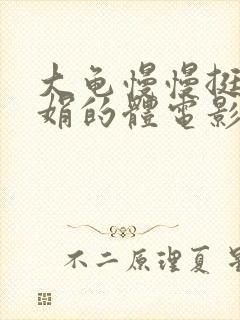 大龟慢慢挺
娟的體電影
不二原理夏